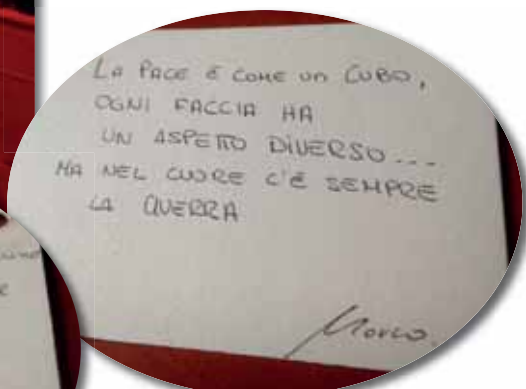 La PACE È COME UN CUBO,
OGNI FACCIA HA
UN ASPETTO DIVERSO....
MA NEL CUORE C'È SEMPRE
LA GUERRA
Marco.